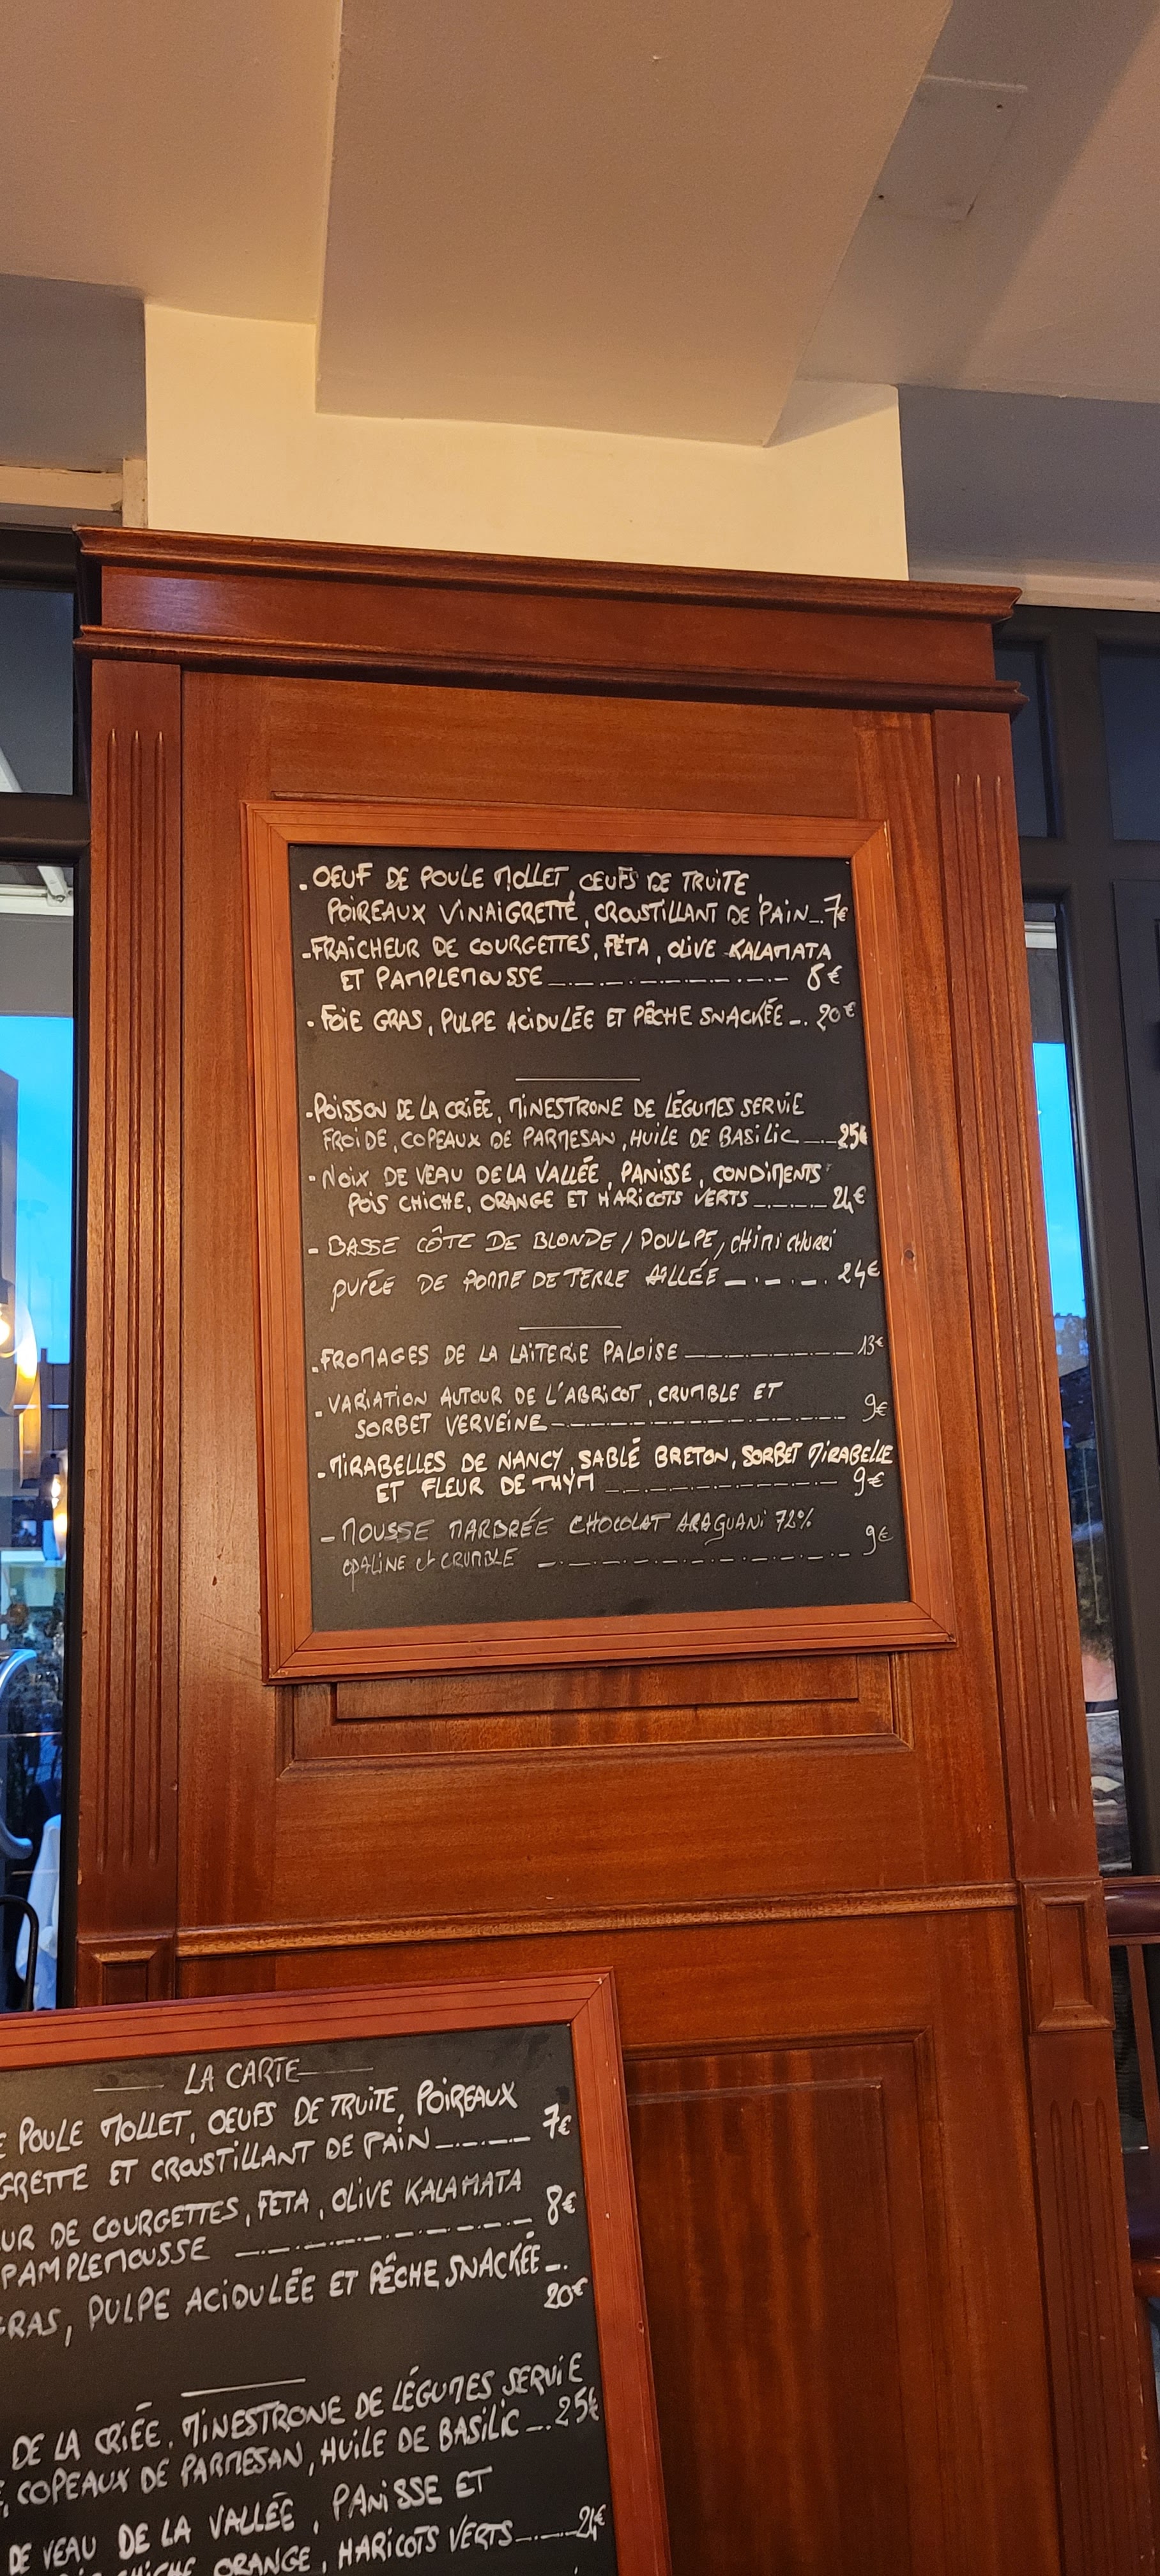 . OEUF DE POULE MOLLET, OEUFS DE TRUITE,
POIREAUX VINAIGRETTE, CROUSTILLANT DE PAIN_.7€
-FRAÎCHEUR DE COURGETTES, FETA, OLIVE KALAMATA
ET PAMPLEMOUSSE_._._._._._._ 8€
- FOIE GRAS, PULPE ACIDULÉE ET PÊCHE SNACKÉE_. 20€
-POISSON DE LA CRIÉE, MINESTRONE DE LÉGUMES SERVIE
FROIDE, COPEAUX DE PARMESAN, HUILE DE BASILIC_._25€
- NOIX DE VEAU DE LA VALLÉE, PANISSE, CONDIMENTS
POIS CHICHE, ORANGE ET HARICOTS VERTS_._._24€
- BASSE CÔTE DE BLONDE / POULPE, CHIMI CHURRI
PURÉE DE POMME DE TERRE AILLÉE_._._. 24€
. FROMAGES DE LA LAITERIE PALOISE_._._._._13€
. VARIATION AUTOUR DE L'ABRICOT, CRUMBLE ET
SORBET VERVEINE_._._._._._._._ 9€
- MIRABELLES DE NANCY, SABLÉ BRETON, SORBET MIRABELLE
ET FLEUR DE THYM_._._._._._ 9€
- MOUSSE MARBRÉE CHOCOLAT ARAGUANI 72%
OPALINE et CRUMBLE _._._._._._._ 9€
LA CARTE
E POULE MOLLET, OEUFS DE TRUITE, POIREAUX
GRETTE ET CROUSTILLANT DE PAIN_._._ 7€
UR DE COURGETTES, FETA, OLIVE KALAMATA
PAMPLEMOUSSE _._._._._._._ 8€
GRAS, PULPE ACIDULÉE ET PÊCHE SNACKÉE_.
20€
DE LA CRIÉE, MINESTRONE DE LÉGUMES SERVIE
, COPEAUX DE PARMESAN, HUILE DE BASILIC_..25€
DE VEAU DE LA VALLÉE, PANISSE ET
CHICHE ORANGE, HARICOTS VERTS_._._24€